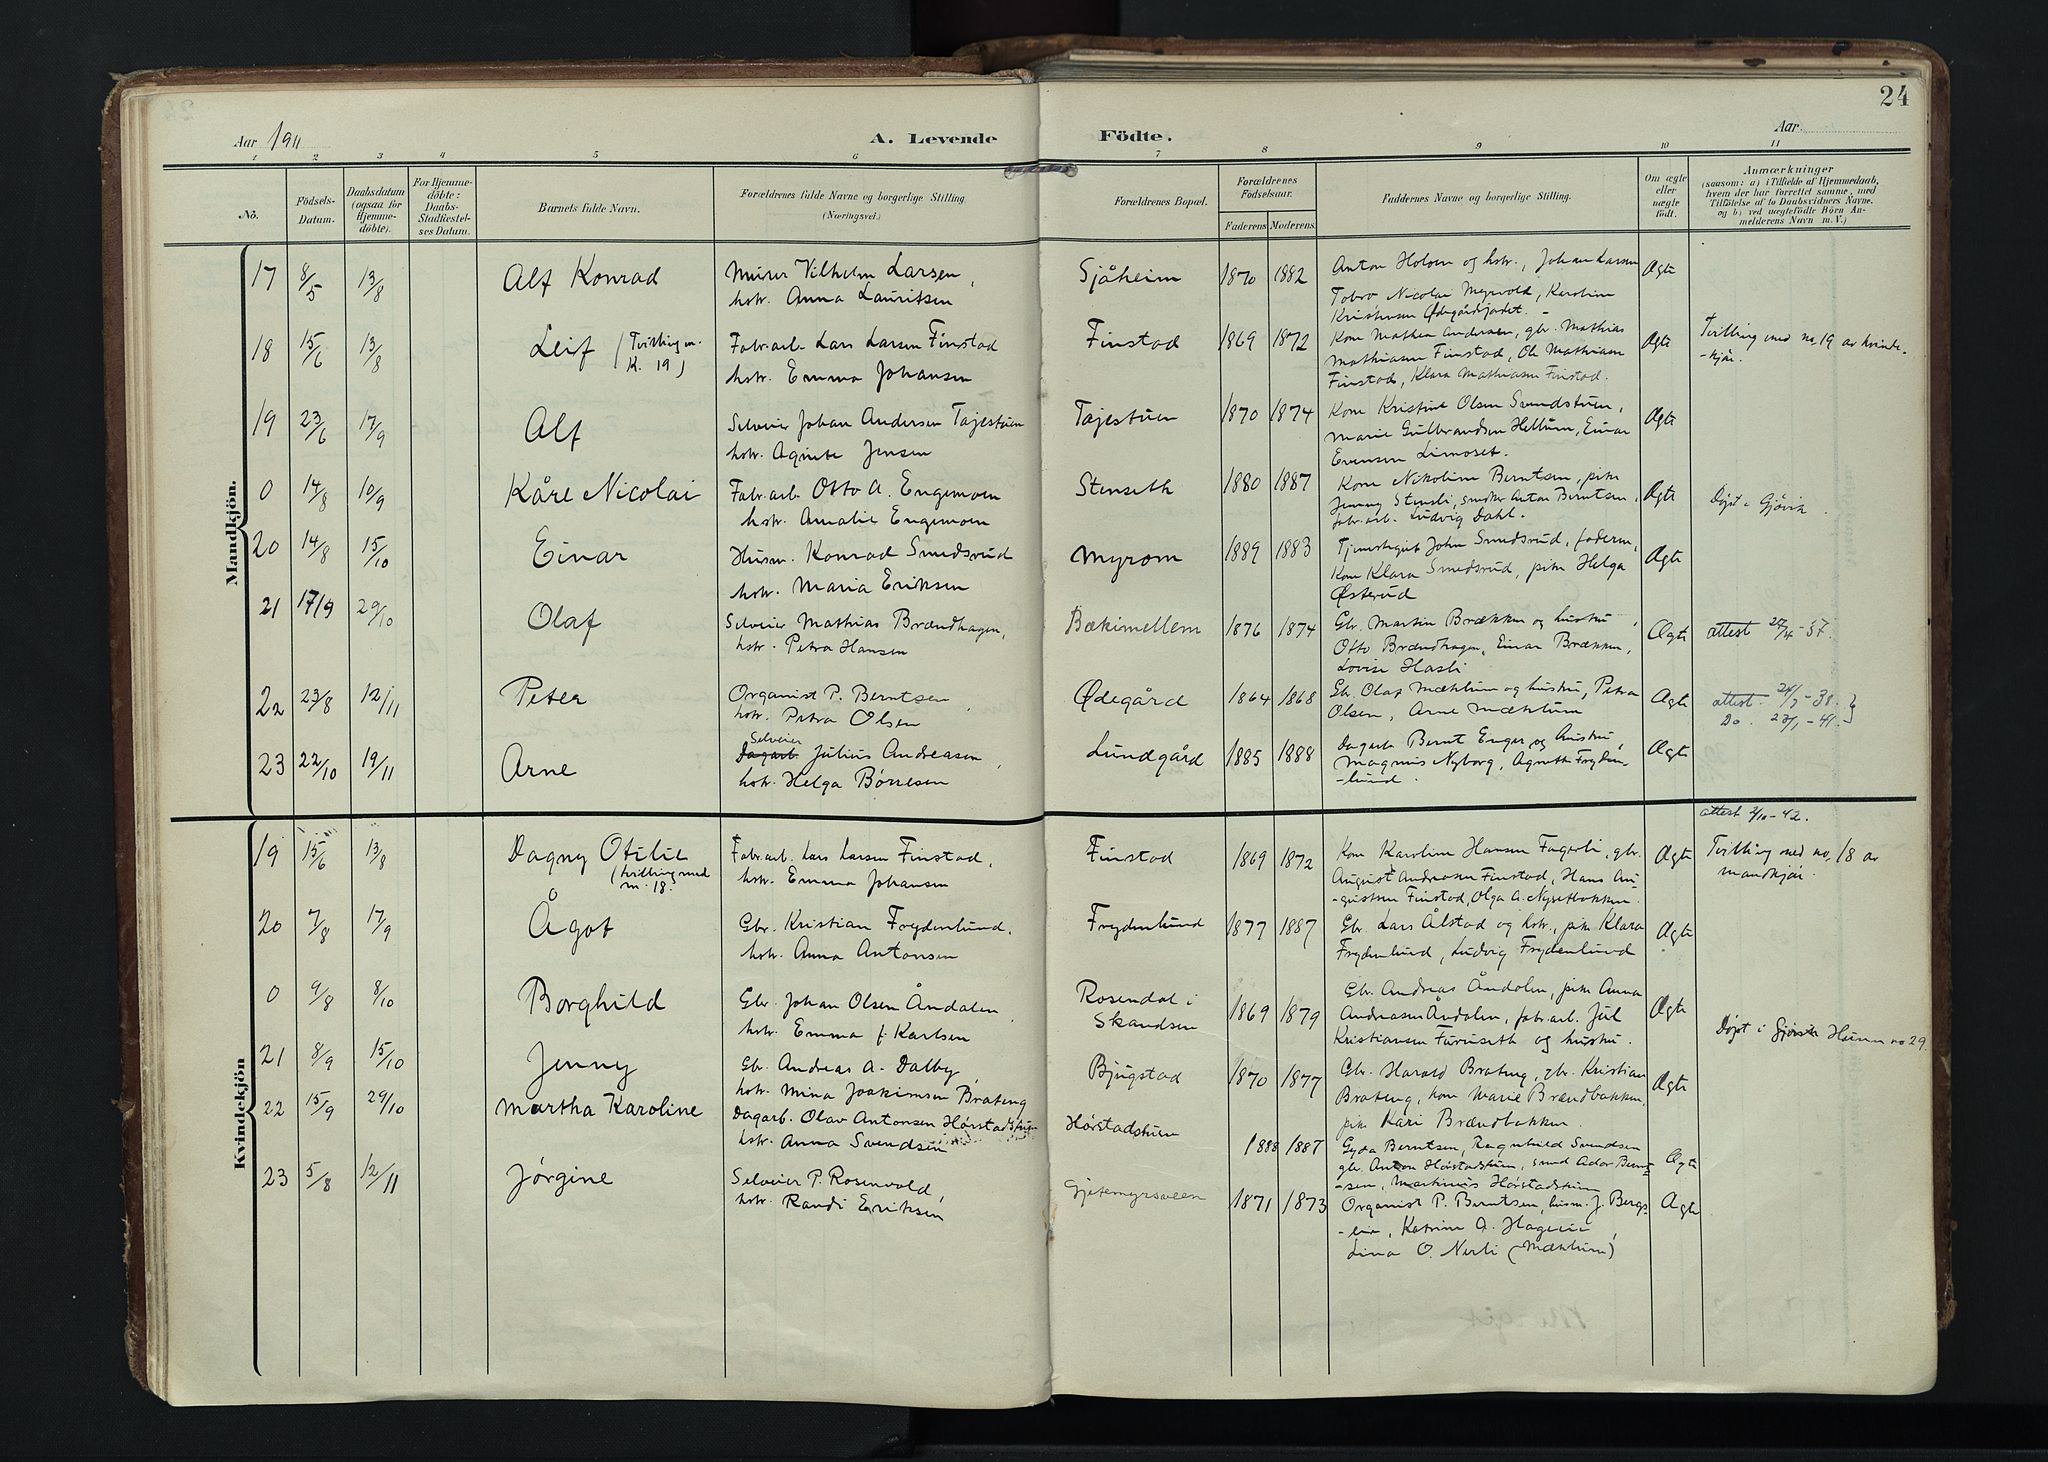 24
Aar 1911
A. Levende
Födte.
Aar
1 2 3 4 5 6 7 8 9 10 11
No.
Födsels-Datum.
Daabsdatum (ogsaa for Hjemme-döbte).
For Hjemme-döbte: Daabs-Stadfæstel-ses Datum.
Barnets fulde Navn.
Forældrenes fulde Navne og borgerlige Stilling.
(Næringsvei.)
Forældrenes Bopæl.
Forældrenes Födselsaar.
Faderens Moderens
Faddernes Navne og borgerlige Stilling.
Om ægte eller uægte födt.
Anmærkninger
(saasom: a) i Tilfælde af Hjemmedaab,
hvem der har forrettet samme, med
Tilföielse af to Daabsvidners Navne,
og b) ved uægtefödte Börn An-
melderens Navn m. V.)
Mandkjön.
17 8/5 13/8 Alf Konrad Murer Vilhelm Larsen, Sjåheim 1870 1882 Anton Holsen og hstr., Johan Larsen Ægte
hstr. Anna Lauritsen Nicolai Myrvold, Karoline
Kristiansen Ødegårdsjordet. -
18 15/6 13/8 Leif (Tvilling m. Fabr.arb. Lars Larsen Finstad Finstad 1869 1872 Kone Mathea Andersen, gbr. Mathias Ægte Tvilling med no. 19 av kvinde-
K. 19) hstr. Emma Johansen Mathiasen Finstad, Ole Mathiasen -kjøn.
Finstad, Klara Mathiasen Finstad.
19 23/6 17/9 Alf Selveier Johan Andersen Tajestuen Tajestuen 1870 1874 Kone Kristine Olsen Svendstuen, Ægte
hstr. Agnete Jensen Marie Gulbrandsen Hellum, Einar
Evensen Limoset.
0 14/8 10/9 Kåre Nicolai Fabr.arb. Otto A. Engemoen Stenseth 1880 1887 Kone Nikoline Berntsen, pike Ægte Døpt i Gjøvik.
hstr. Amalie Engemoen Jenny Stensli, snekker Anton Berntsen,
fabr.arb. Ludvig Dahl.
20 14/8 15/10 Einar Husm. Konrad Smedsrud Myrom 1889 1883 Tjenestegut John Smedsrud, faderen, Ægte
hstr. Maria Eriksen Kone Klara Smedsrud, pike Helga
Østerud
21 17/9 29/10 Olaf Selveier Mathias Brændhagen, Bækimellem 1876 1874 Gbr. Martin Brækken og hustru, Ægte attest 27/4-37.
hstr. Petra Hansen Otto Brændhagen, Einar Brækken,
Lovise Hasli
22 23/8 12/11 Peter Organist P. Berntsen, Ødegård 1864 1868 Gbr. Olaf Mæhlum og hustru, Petra Ægte attest 24/7-38.
hstr. Petra Olsen Olsen, Arne Mæhlum Do. 27/1-41.
23 22/10 19/11 Arne Selveier Dagarb. Julius Andreasen, Lundgård 1885 1888 Dagarb. Bernt Enger og hustru, Ægte
hstr. Helga Børresen Magnus Nyborg, Agnethe Fryden-
-lund.
attest 2/10-42.
Kvindekjön
19 15/6 13/8 Dagny Otilie Fabr.arb. Lars Larsen Finstad, Finstad 1869 1872 Kone Karoline Hansen Fagerli, gbr. Ægte Tvilling med no. 18 av
(tvilling med m. 18. hstr. Emma Johansen August Andreasen Finstad, Hans Au- mandkjøn.
-gustsen Finstad, Olga A. Nysetbakken.
20 7/8 17/9 Ågot Gbr. Kristian Frydenlund, Frydenlund 1877 1887 Gbr. Lars Ålstad og hstr., pike Klara Ægte
hstr. Anna Antonsen Frydenlund, Ludvig Frydenlund
0 9/8 8/10 Borghild Gbr. Johan Olsen Åndalen, Rosendal i 1869 1879 Gbr. Andreas Åndalen, pike Anna Ægte
hstr. Emma f. Karlsen Skandsen Andreasen Åndalen, fabr.arb. Jul Døpt i Hunn no 29.
Kristiansen Furuseth og hustru.
21 8/9 15/10 Jenny Gbr. Andreas A. Dalby, Bjugstad 1870 1877 Gbr. Harald Brateng, gbr. Kristian Ægte
hstr. Mina Joakimsen Brateng Brateng, kone Marie Brændbakken,
pike Kari Brændbakken.
22 15/9 29/10 Martha Karoline Dagarb. Olav Antonsen Hørstadstuen Hørstadstuen 1888 1887 Gyda Berntsen, Ragnhild Svendsen Ægte
hstr. Anna Svendsen gbr. Anton Hørstadstuen, smed Ador Bernt-
-sen, Martinus Hørstadstuen
23 5/8 12/11 Jørgine Selveier P. Rosenvold, Gjetemyrsveen 1871 1873 Organist P. Berntsen, husm. J. Bergs- Ægte
hstr. Randi Eriksen Katrine A. Hageeie,
Lina O. Nerli (Mæhlum)